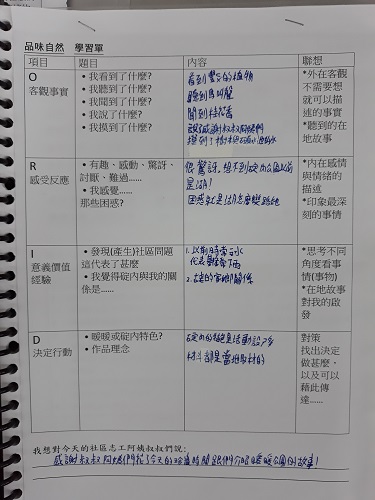 品味自然　學習單
項目	題目	內容	聯想
O
客觀事實
• 我看到了什麼?
• 我聽到了什麼?
• 我聞到了什麼?
• 我說了什麼?
• 我摸到了什麼?
看到
的植物
聽到鳥叫聲
聞到桂花香
說感謝叔叔阿姨們
摸到
*外在客觀
不需要想
就可以描
述的事實
*聽到的在
地故事
R
感受反應
• 有趣、感動、驚訝、
討厭、難過……
• 我感覺……
那些困惑?
很驚訝,想不到碇內公園以前
是湖!
困惑就是湖怎麼變路地
*內在感情
與情緒的
描述
*印象最深
刻的事情
I
意義價值
經驗
• 發現(產生)社區問題
這代表了甚麼
• 我覺得碇內與我的關
係是……
1. 以前時常
代表
2.
關係
*思考不同
角度看事
情(事物)
*在地故事
對我的啟
發
D
決定行動
• 暖暖或碇內特色?
• 作品理念
碇內的特色是活動設
材料都是當地取材的
對策
找出決定
做甚麼、
以及可以
藉此傳
達……
我想對今天的社區志工阿姨叔叔們說:
感謝叔叔阿姨們花今天的珍貴時間跟我們介紹暖暖公園的故事!